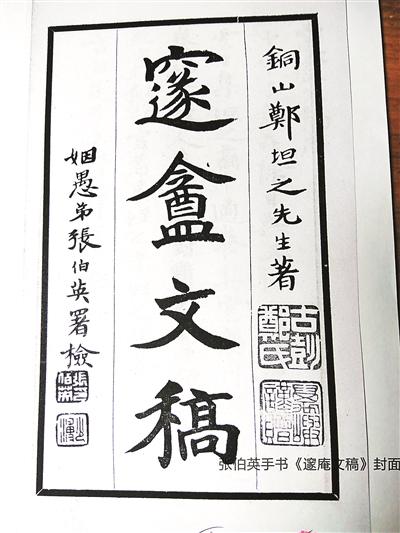 銅山鄭坦之先生著
䆳盦文稿
姻愚弟張伯英署檢
古彭鄭氏
张伯英手书《邃庵文稿》封面